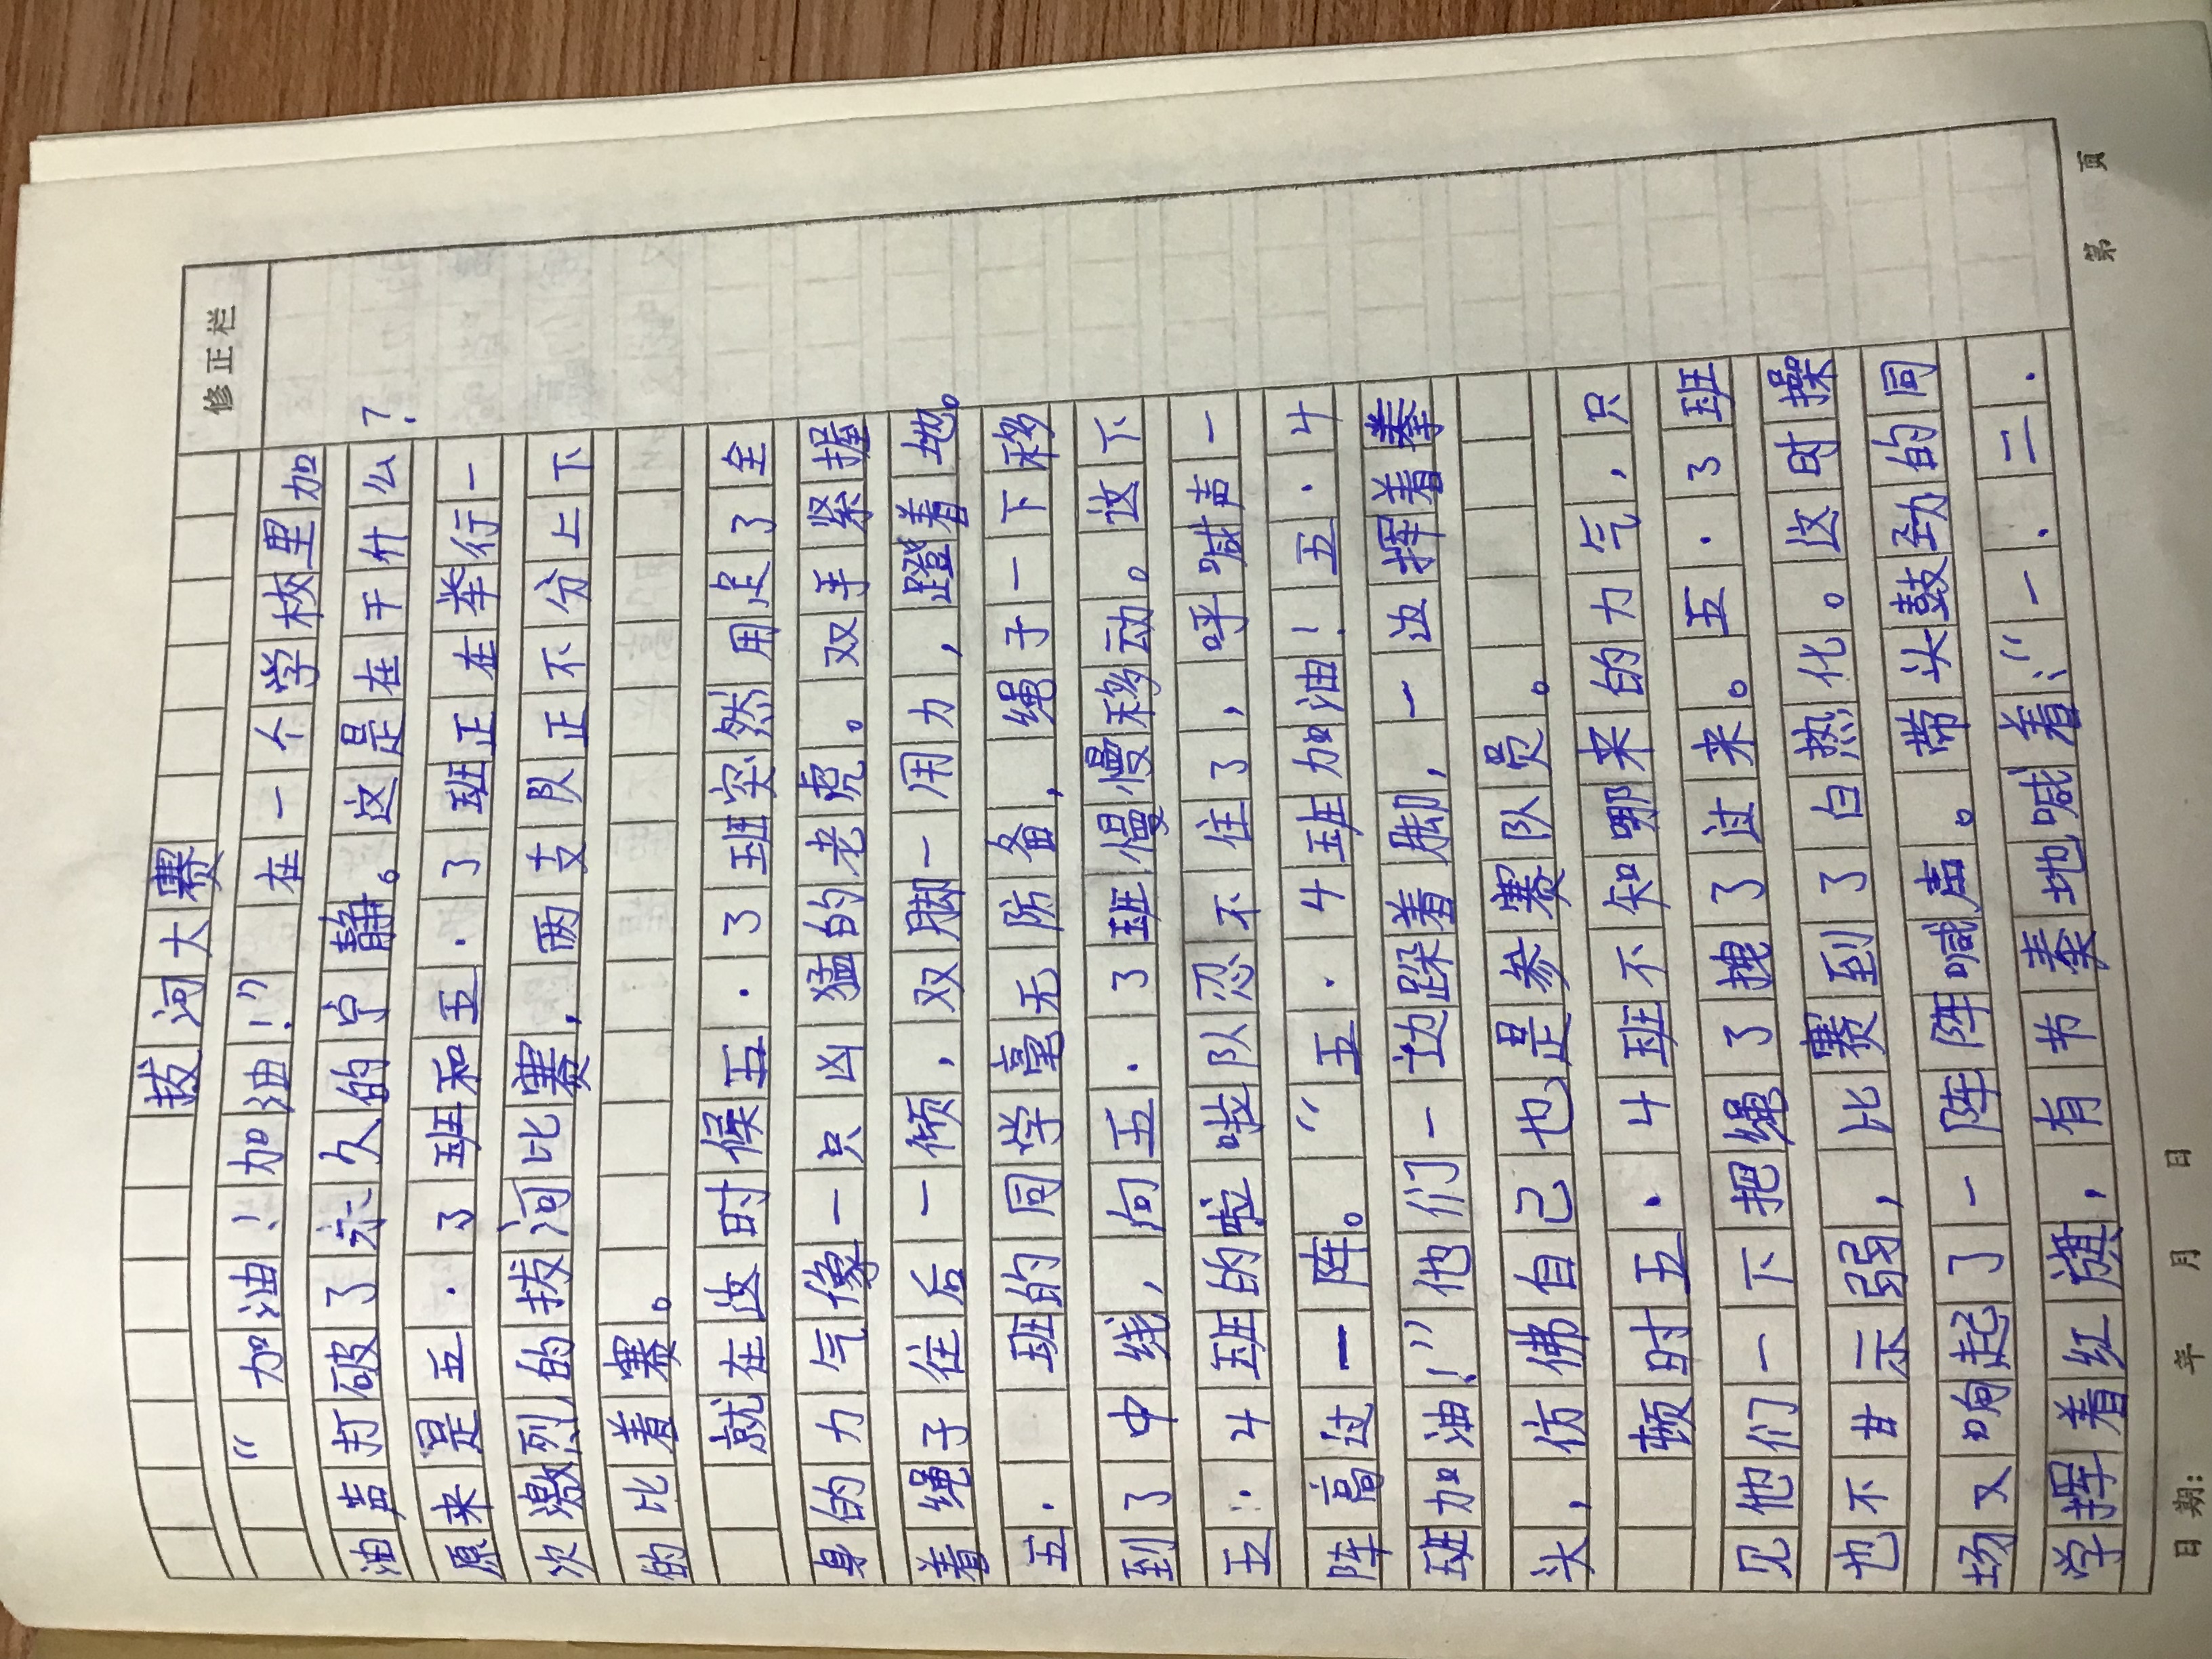 修正栏
拔河大赛
“加油！加油！”在一个学校里加
油声打破了许久的宁静。这是在干什么？
原来是五·3班和五·3班正在举行一
次激烈的拔河比赛，两支队正不分上下
的比着赛。
就在这时候五·3班突然用足了全
身的力气像一只凶猛的老虎。双手紧握
着绳子往后一倾，双脚一用力，蹬着地。
五·班的同学毫无防备，绳子一下移
到了中线，向五·3班慢慢移动。这下
五·4班的啦啦队忍不住了，呼喊声一
阵高过一阵。“五·4班加油！五·4
班加油！”他们一边跺着脚，一边挥着拳
头，仿佛自己也是参赛队员。
顿时五·4班不知哪来的力气，只
见他们一下把绳子拽了过来。五·3班
也不甘示弱，比赛到了白热化。这时操
场又响起了一阵阵喊声。带头鼓劲的同
学挥着红旗，有节奏地喊着：“一．二．
日期： 年 月 日 第 页